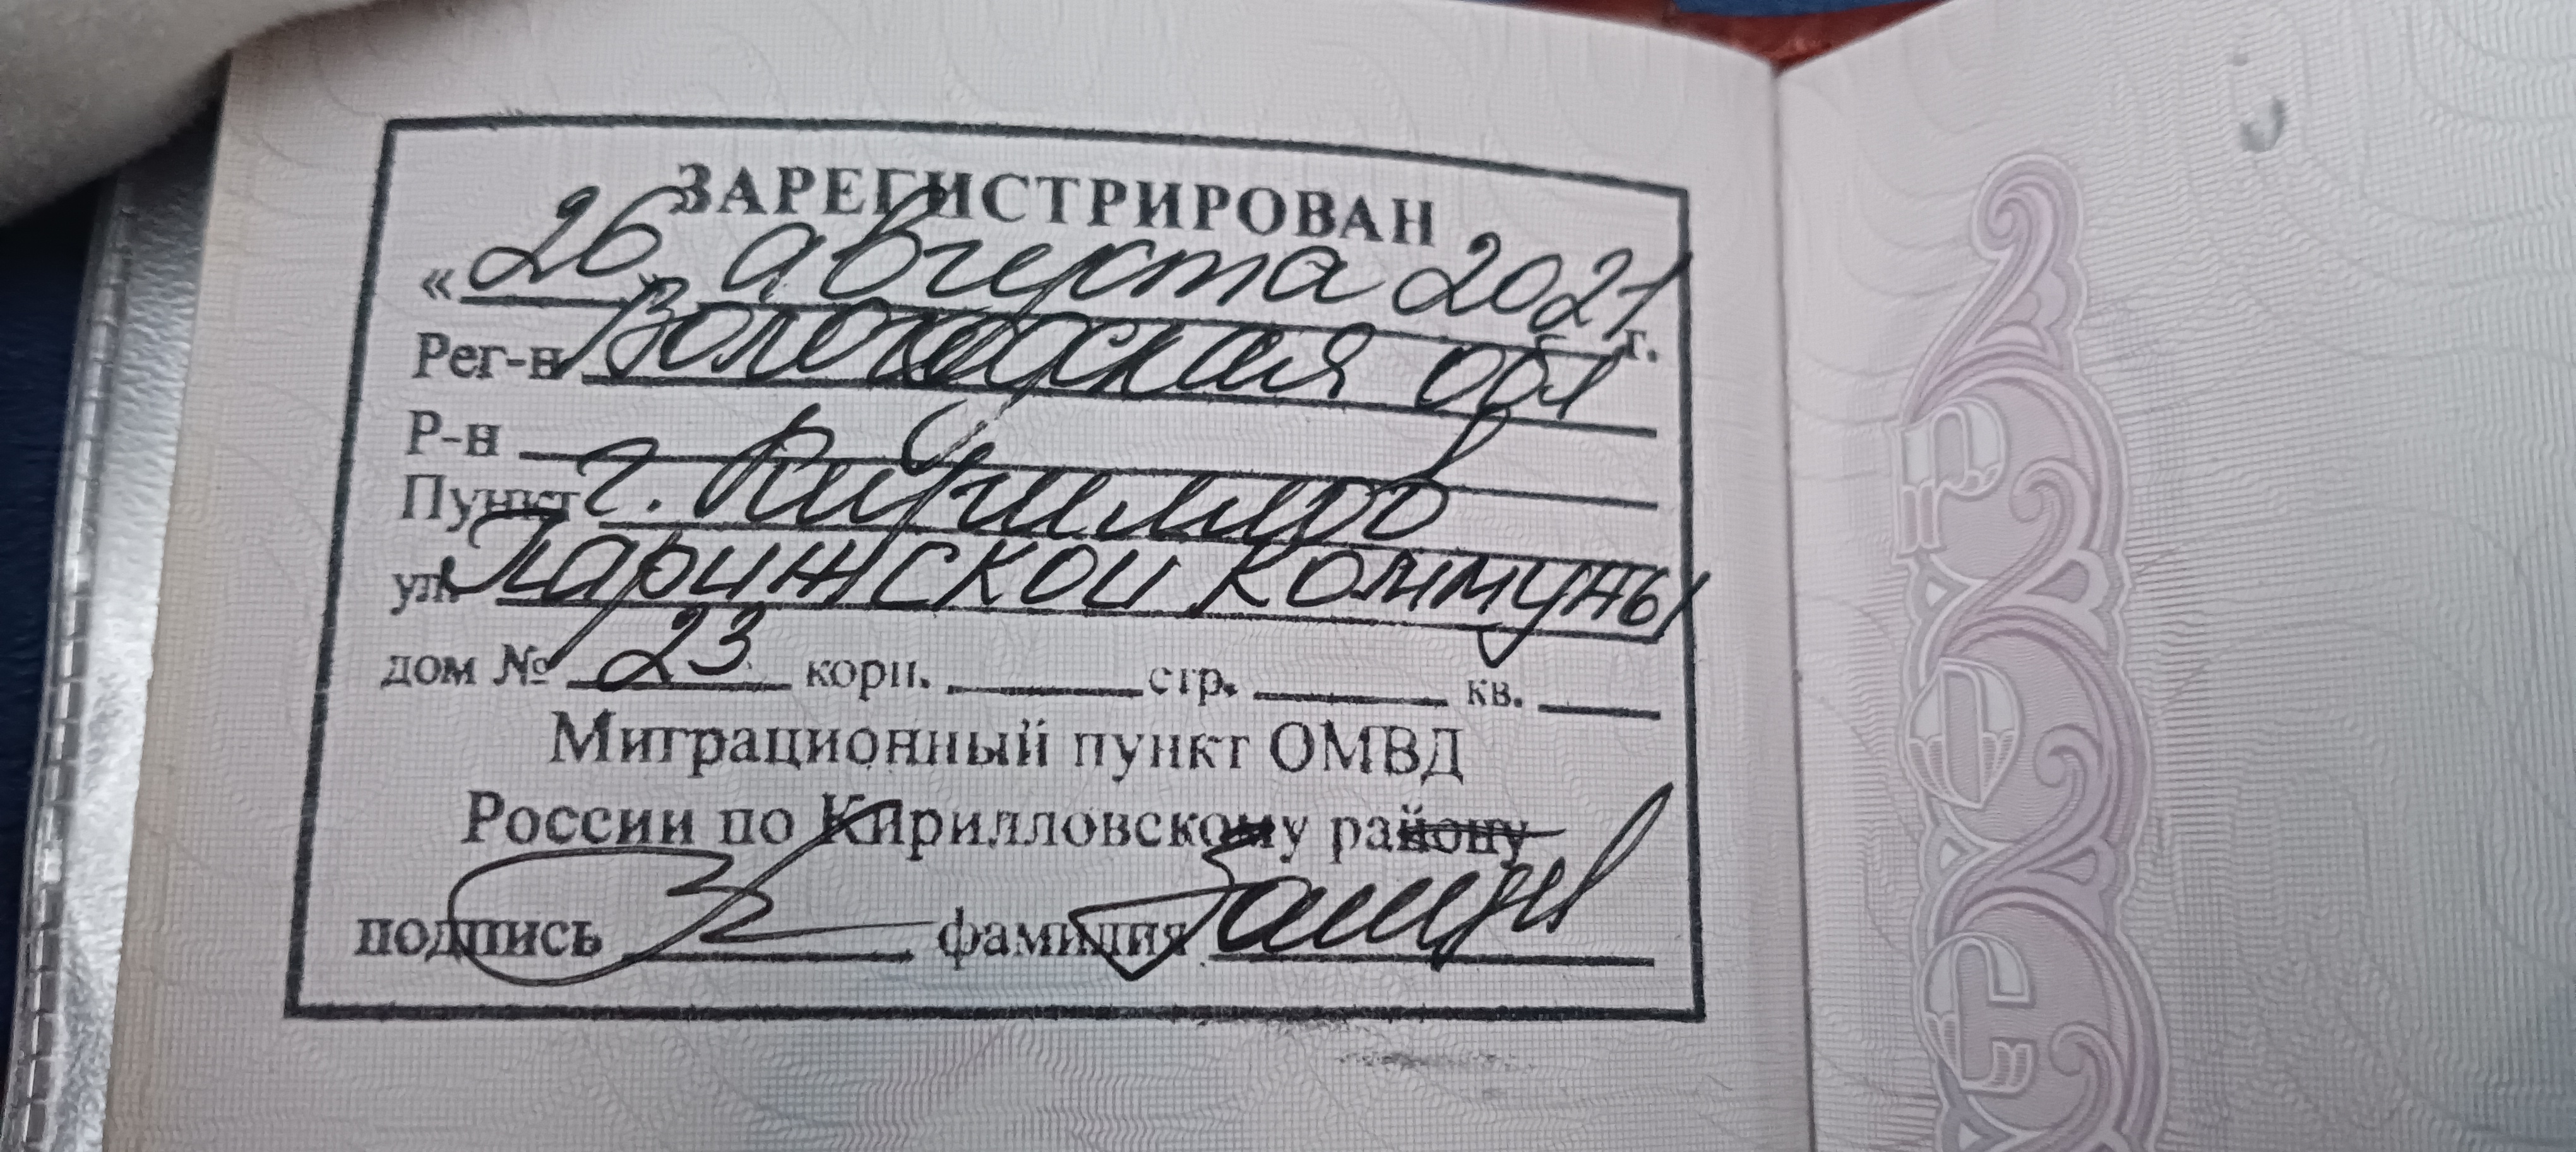 ЗАРЕГИСТРИРОВАН
«26» августа 2021 г.
Рег-н Вологодская обл
Р-н
Пункт г. Кириллов
ул. Парижской коммуны
дом № 23 корп. стр. кв.
Миграционный пункт ОМВД
России по Кирилловскому району
подпись фамилия